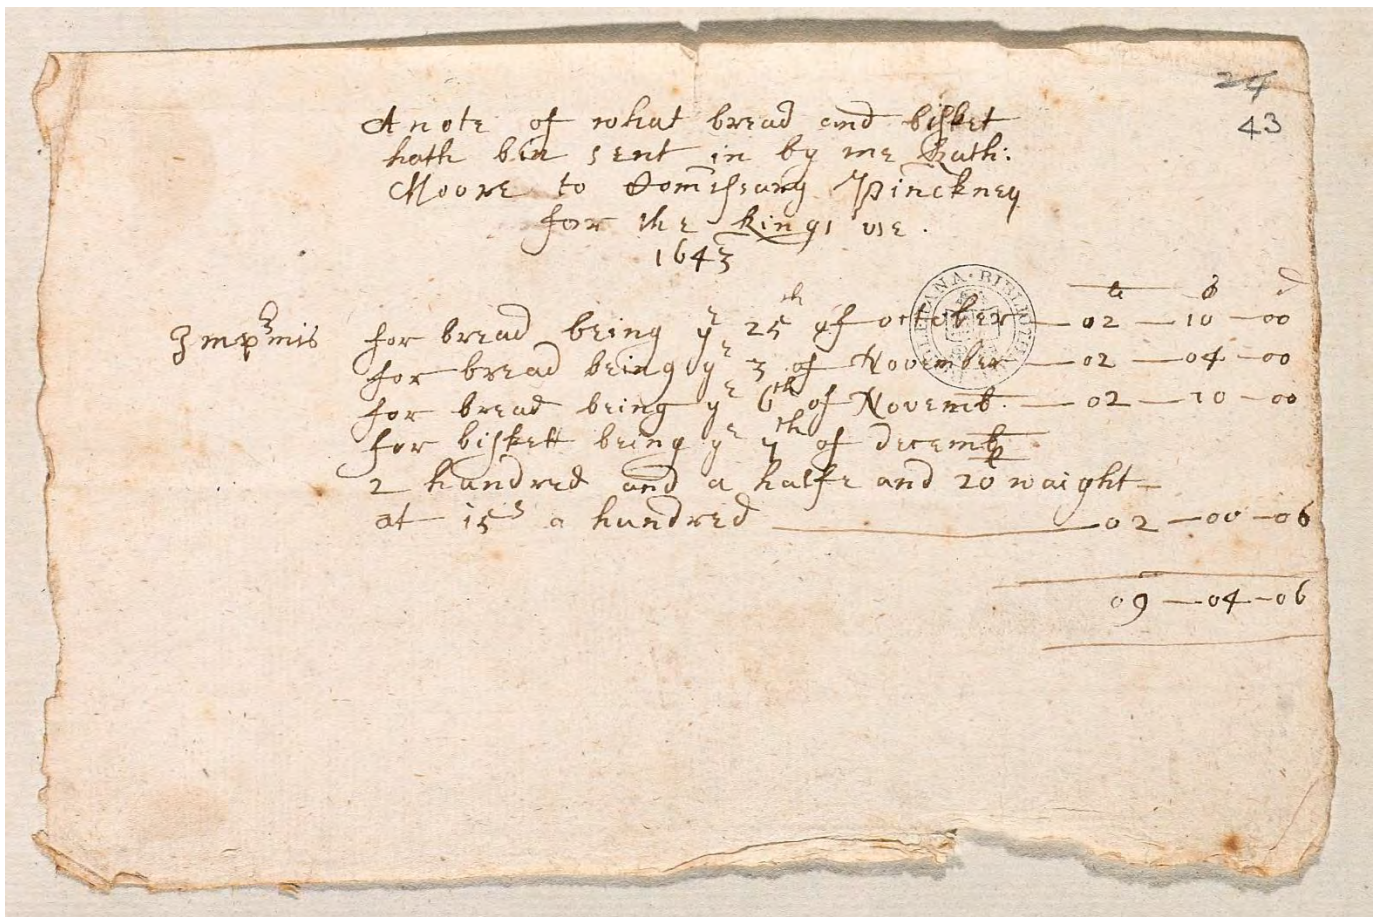 24
43
A note of what bread and bisket
hath bin sent in by me Kath:
Moore to Comissary Pinckney
for the Kings use .
1643
li s d
Imprimis for bread being ye 25th of october — 02 — 10 — 00
for bread being ye 3 of November — 02 — 04 — 00
for bread being ye 6th of Novemb. — 02 — 10 — 00
for biskett being ye 7th of decemb
2 hundred and a halfe and 20 waight
at 15s a hundred — 02 — 00 — 06
09 — 04 — 06